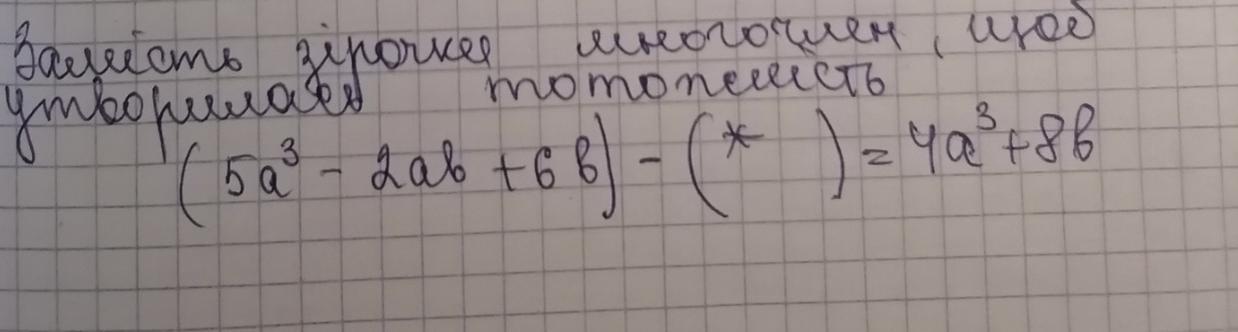 Замість зірочки многочлен, щоб
утворилася тотожність
(5a³ - 2ab + 6b) - (* ) = 4a³ + 8b